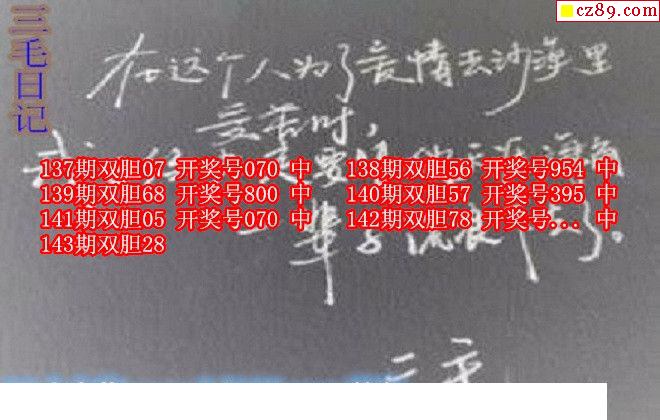 三毛日记
cz89.com
在这个人为了爱情去沙漠里
受苦时,
137期双胆07 开奖号070 中 138期双胆56 开奖号954 中
139期双胆68 开奖号800 中 140期双胆57 开奖号395 中
141期双胆05 开奖号070 中 142期双胆78 开奖号... 中
143期双胆28
一辈子流浪下去了。
三毛